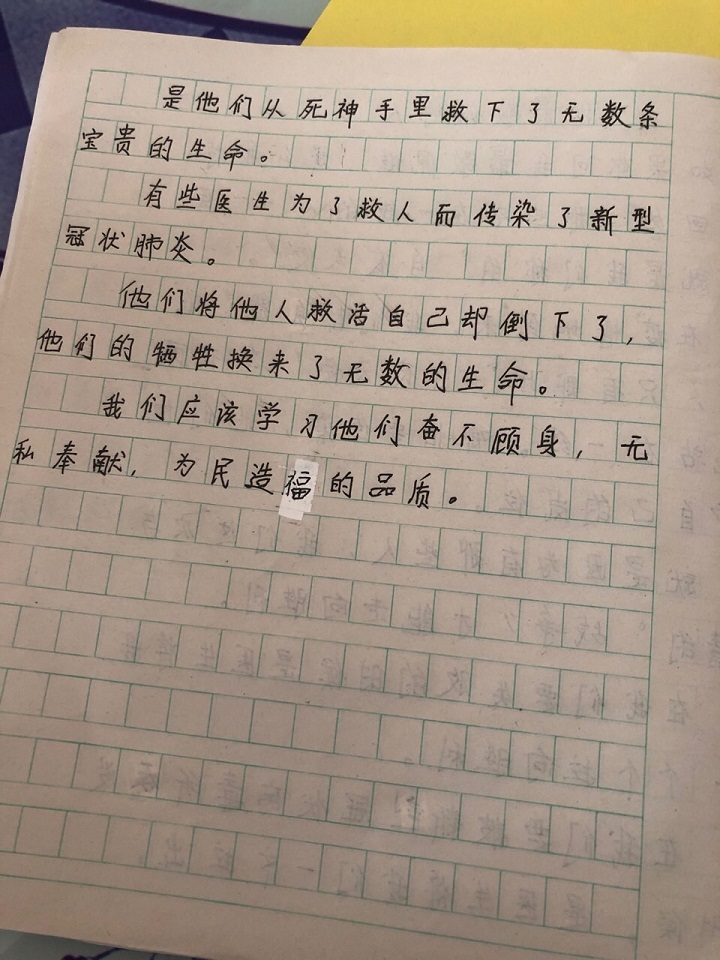 是他们从死神手里救下了无数条
宝贵的生命。
有些医生为了救人而传染了新型
冠状肺炎。
他们将他人救活自己却倒下了，
他们的牺牲换来了无数的生命。
我们应该学习他们奋不顾身，无
私奉献，为民造福的品质。